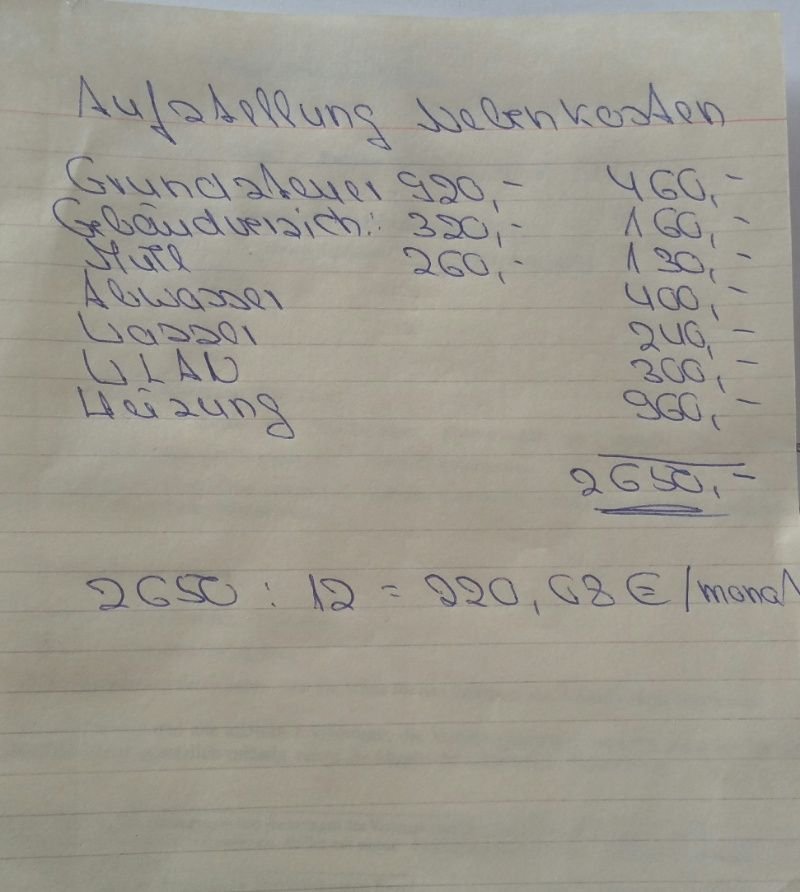 Aufstellung Nebenkosten
Grundsteuer 920,- 460,-
Gebäudversich.: 320,- 160,-
Müll 260,- 130,-
Abwasser 400,-
Wasser 240,-
WLAN 300,-
Heizung 960,-
2650,-
2650 : 12 = 220,68 € / monat